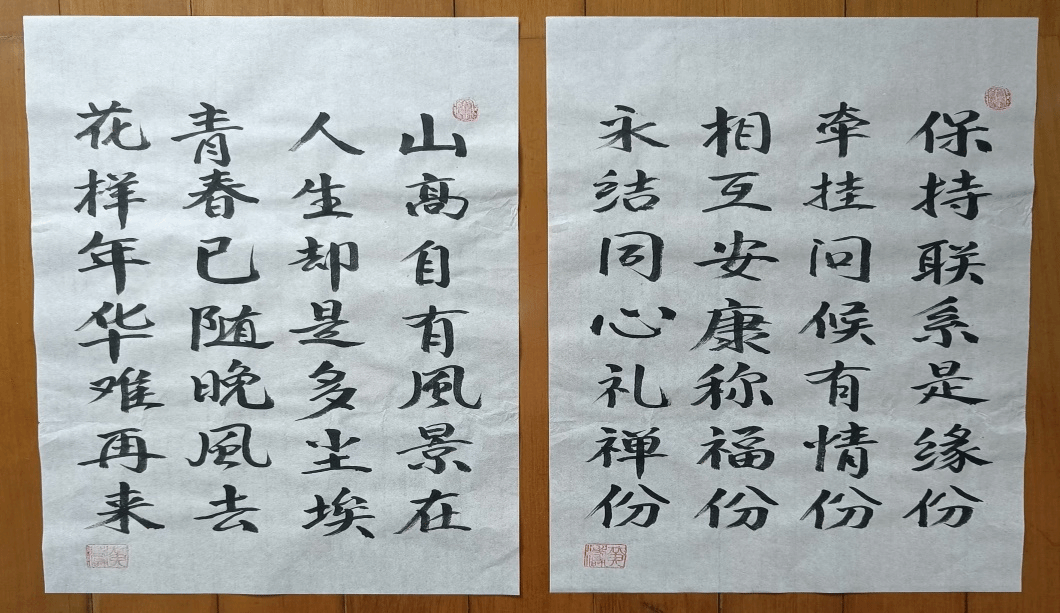 保持联系是缘份
牵挂问候有情份
相互安康称福份
永结同心礼禅份
山高自有風景在
人生却是多尘埃
青春已随晚風去
花样年华难再来